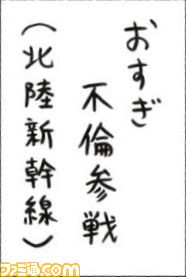 おすぎ
不倫参戦
（北陸新幹線）
ファミ通.com